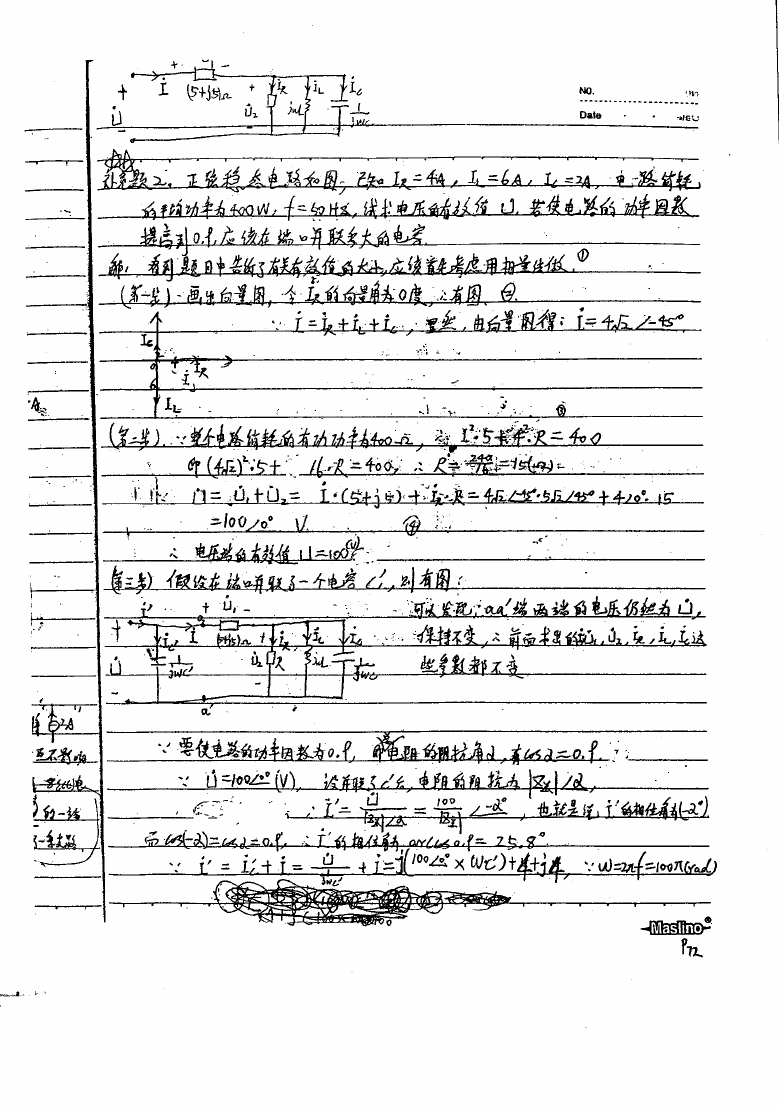 + U̇₁ -
+ İ (5+j5)Ω + İ_R İ_L İ_C
U̇ U̇₂ jωL 1/jωC
- -
NO.
Date
补充题2. 正弦稳态电路如图, 已知 I_R=4A, I_L=6A, I_C=2A, 电路消耗
的平均功率为400W, f=50Hz, 试求电压的有效值 U. 若使电路的功率因数
提高到0.9, 应该在端口并联多大的电容.
解: 看到题目中告诉了有关有效值的大小, 应该首先考虑用相量法做. ①
(第一步) 画出向量图, 令 İ_R的向量角为0度, ∴有图. ②
∵ İ=İ_R+İ_L+İ_C, 显然, 由向量图得: İ=4√2 ∠-45°
I_C
4 İ_R
İ
6
I_L
③
(第二步) ∵整个电路消耗的有功功率为400Ω, ∴ I²·5+4²·R=400
即 (4√2)²·5+ 16·R=400, ∴ R=240/16=15(Ω)
U̇=U̇₁+U̇₂= İ·(5+j5)+İ_R·R=4√2∠-45°·5√2∠45°+4∠0°·15
=100∠0° V. ④
∴ 电压的有效值 U=100(V).
(第三步) 假设在端口并联了一个电容 C′, 则有图:
İ′ a + U̇₁ - 可以发现: aa′端两端的电压仍然为 U̇,
+ İ_C′ İ (5+j5)Ω + İ_R İ_L İ_C 保持不变, ∴前面求出的 U̇₁, U̇₂, İ_R, İ_L, İ_C 这
U̇ 1/jωC′ U̇₂ R jωL 1/jωC 些参数都不变.
- a′ -
2A
∵ 要使电路的功率因数为0.9, 即电阻的阻抗角α, 有cosα=0.9.
互不影响
∵ U̇=100∠0° (V), 设并联了C′后, 电阻的阻抗为 |Z_X|∠α,
的一端 ∴ İ′= U̇/|Z_X|∠α = 100/|Z_X| ∠-α°, 也就是说, İ′的相位角为(-α°)
而 cos(-α)=cosα=0.9, ∴ İ′的相位角为 arccos0.9= 25.8°
∵ İ′= İ_C′+İ= U̇/(1/jωC′) +İ=j(100∠0°×ωC′)+4+j4, ∵ω=2πf=100π(rad)
Maslino®
P72